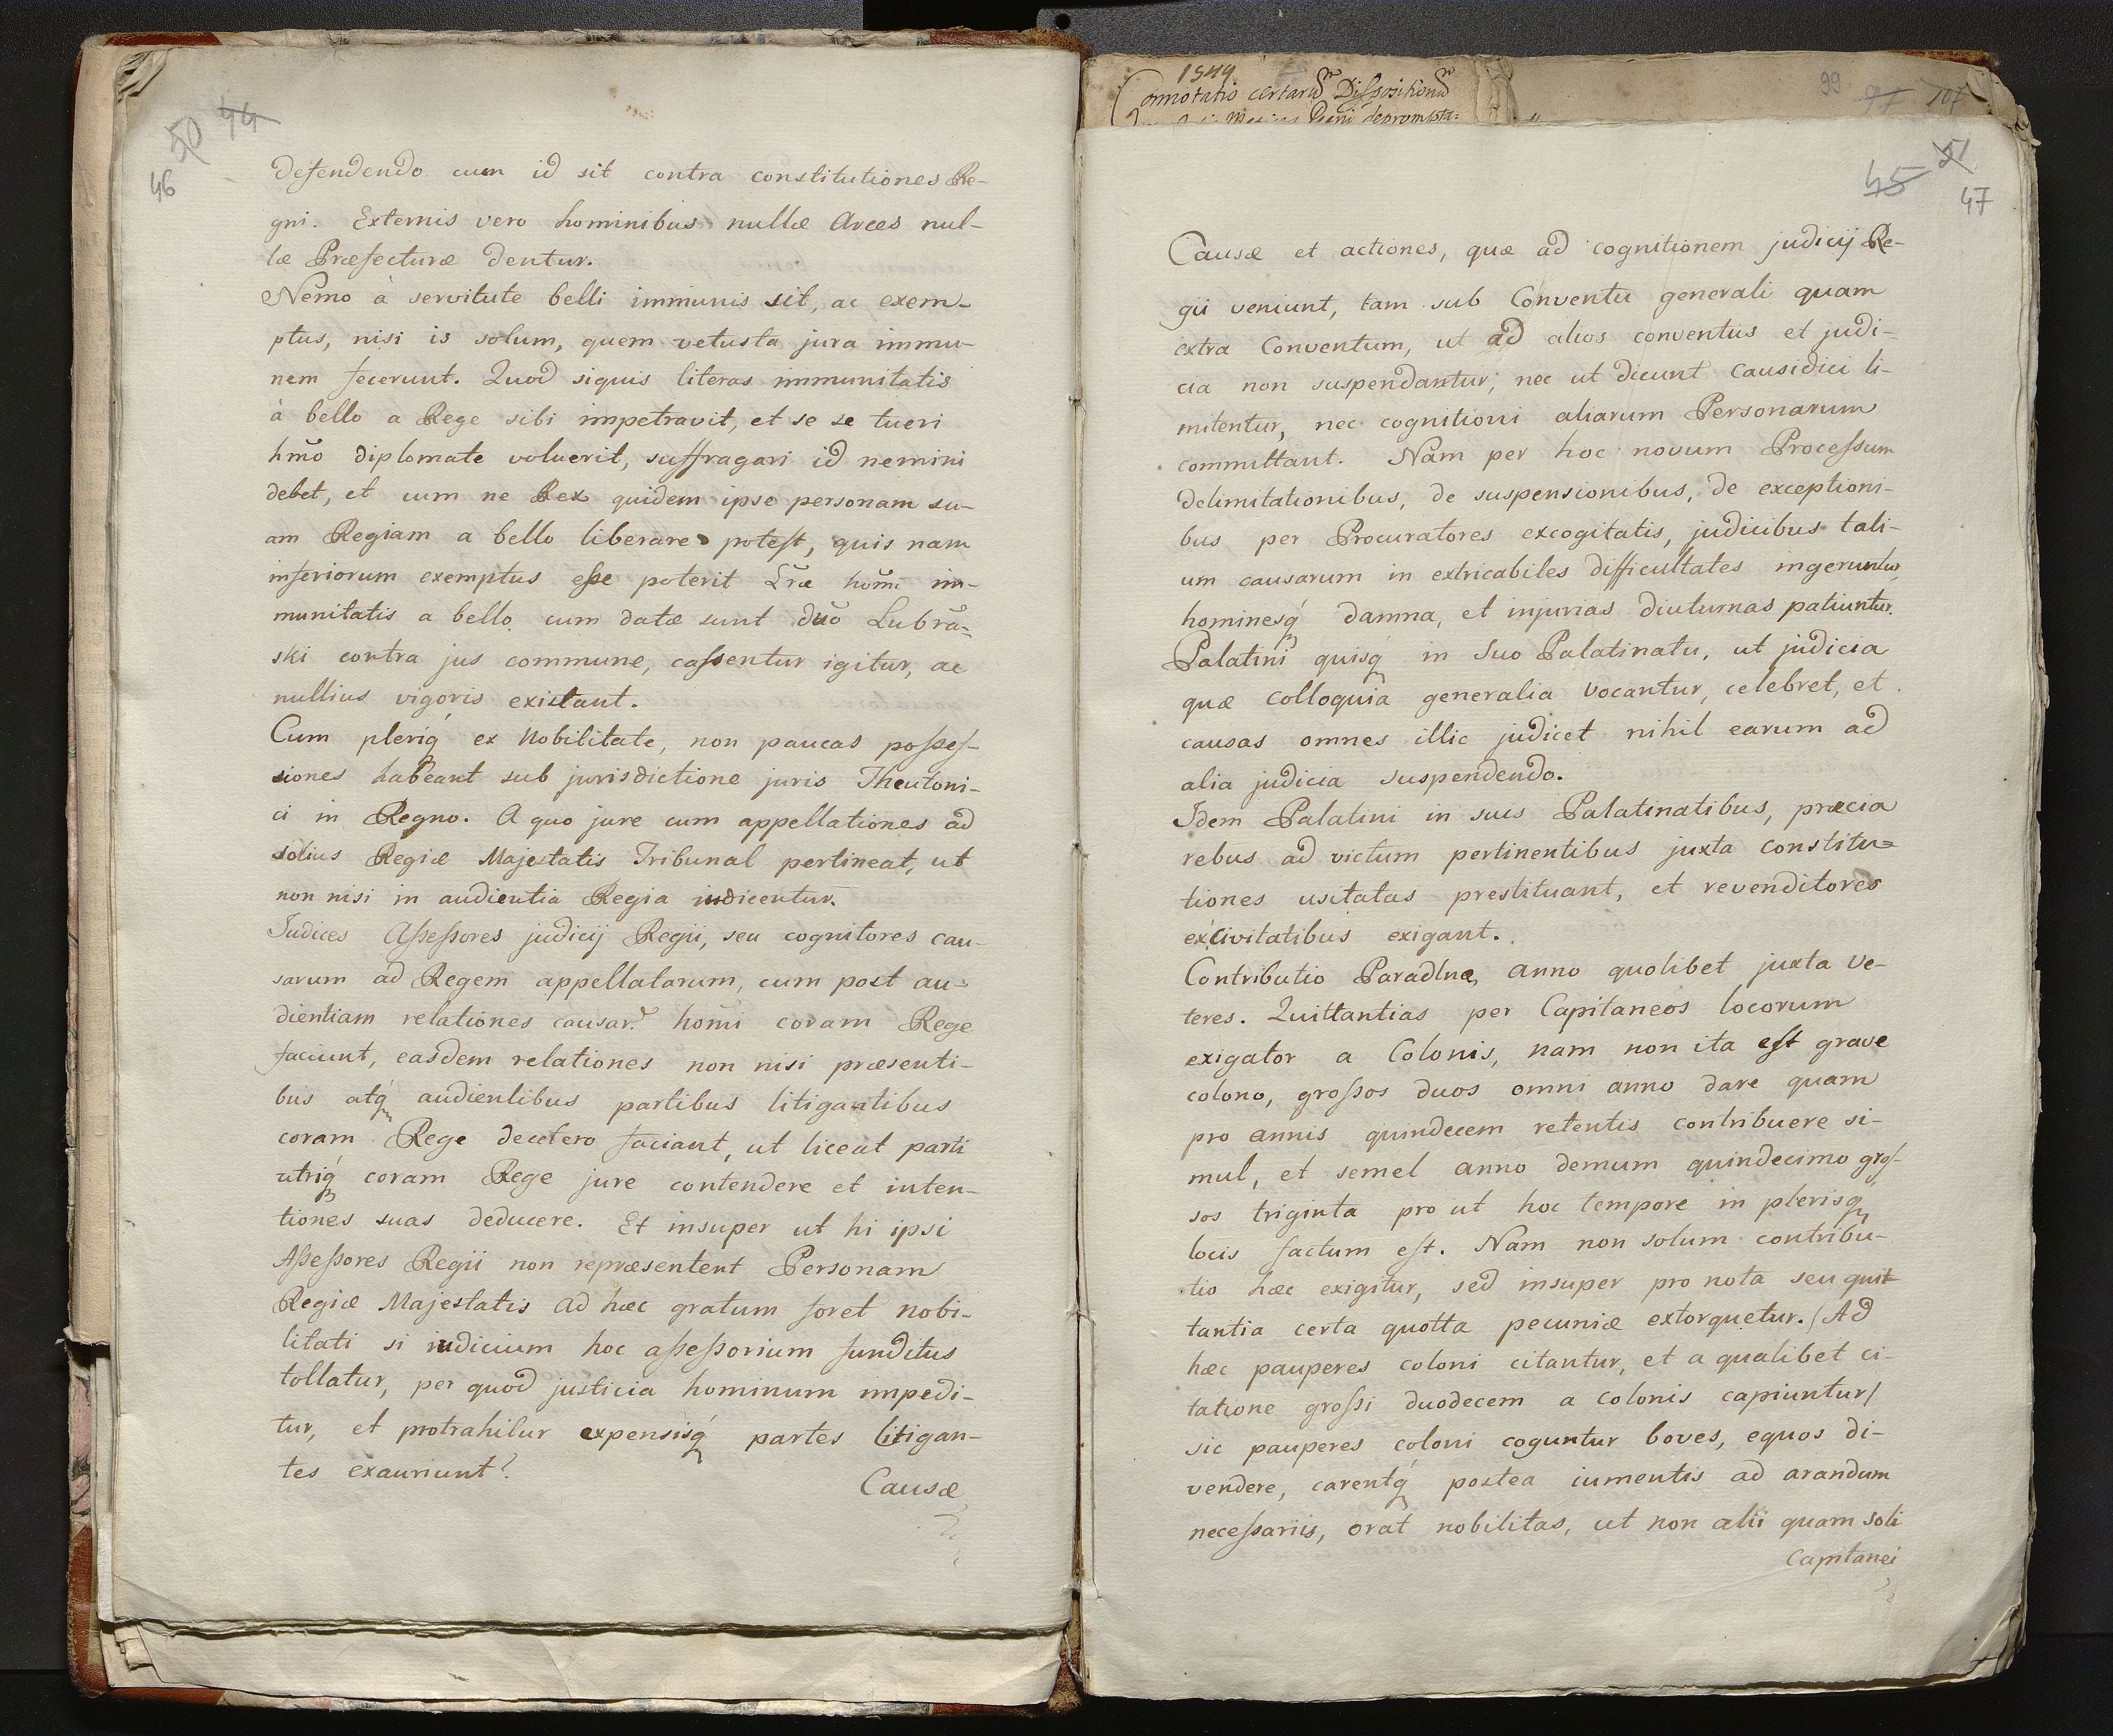 50 44
46
defendendo cum id sit contra constitutiones Re-
gni. Externis vero hominibus nullæ Arces nul-
læ Præfecturæ dentur.
Nemo à servitute belli immunis sit, ac exem-
ptus, nisi is solum, quem vetusta jura immu-
nem fecerunt. Quod siquis literas immunitatis
à bello a Rege sibi impetravit, et se se tueri
hm̃o diplomate voluerit, suffragari id nemini
debet, et cum ne Rex quidem ipse personam su-
am Regiam a bello liberare potest, quis nam
inferiorum exemptus esse poterit Lr̃æ hom̃i im-
munitatis a bello cum datæ sunt dño Lubrã-
ski contra jus commune, cassentur igitur, ac
nullius vigoris existant.
Cum pleriq́ ex Nobilitate, non paucas posses-
siones habeant sub jurisdictione juris Theutoni-
ci in Regno. A quo jure cum appellationes ad
solius Regiæ Majestatis Tribunal pertineat, ut
non nisi in audientia Regia iudicentur.
Iudices Assessores judicij Regii, seu cognitores cau-
sarum ad Regem appellatarum, cum post au-
dientiam relationes causar. hom̃i coram Rege
faciunt, easdem relationes non nisi præsenti-
bus atq́ audientibus partibus litigantibus
coram Rege decetero faciant, ut liceat parti
utriq́ coram Rege jure contendere et inten-
tiones suas deducere. Et insuper ut hi ipsi
Assessores Regii non repræsentent Personam
Regiæ Majestatis Ad hæc gratum foret nobi-
litati si iudicium hoc assessorium funditus
tollatur, per quod justicia hominum impedi-
tur, et protrahitur expensisq́ partes litigan-
tes exauriunt.
Causæ
1544
Connotatio certarũ Dispositionũ
99 97 107
45 51
47
Causæ et actiones, quæ ad cognitionem judicij Re-
gii veniunt, tam sub Conventu generali quam
extra Conventum, ut ad alios conventus et judi-
cia non suspendantur, nec ut dicunt Causidici li-
mitentur, nec cognitioni aliarum Personarum
committant. Nam per hoc novum Processum
delimitationibus, de suspensionibus, de exceptioni-
bus per Procuratores excogitatis, judicibus tali-
um causarum in extricabiles difficultates ingeruntur,
hominesq́ damna, et injurias diuturnas patiuntur.
Palatini quisq́ in suo Palatinatu, ut judicia
quæ colloquia generalia vocantur, celebret, et
causas omnes illic judicet nihil earum ad
alia judicia suspendendo.
Idem Palatini in suis Palatinatibus, præcia
rebus ad victum pertinentibus juxta constitu-
tiones usitatas prestituant, et revenditores
ex Civitatibus exigant.
Contributio Paradlnæ, anno quolibet juxta ve-
teres. Quittantias per Capitaneos locorum
exigator a Colonis, nam non ita est grave
colono, grossos duos omni anno dare quam
pro annis quindecem retentis contribuere si-
mul, et semel anno demum quindecimo gros-
sos triginta pro ut hoc tempore in plerisq́
locis factum est. Nam non solum contribu-
tio hæc exigitur, sed insuper pro nota seu quit
tantia certa quotta pecuniæ extorquetur. /Ad
hæc pauperes coloni citantur, et a qualibet ci-
tatione grossi duodecem a colonis capiuntur/
sic pauperes coloni coguntur boves, equos di-
vendere, carentq́ postea iumentis ad arandum
necessariis, orat nobilitas, ut non alii quam soli
Capitanei